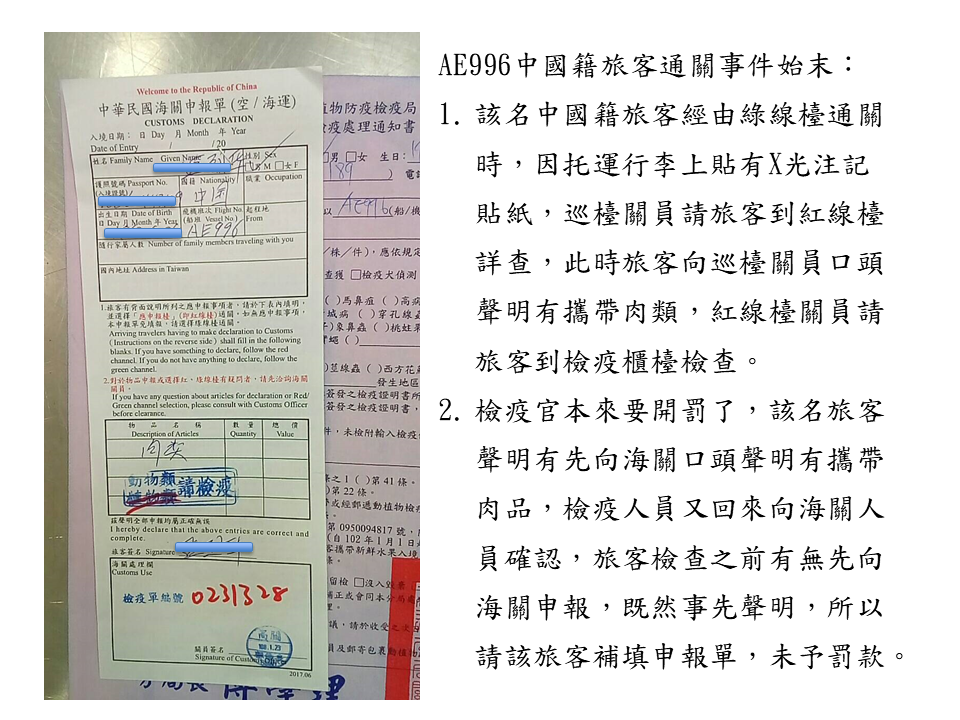 Welcome to the Republic of China
中華民國海關申報單(空/海運)
CUSTOMS DECLARATION
入境日期： 日 Day 月 Month 年 Year
Date of Entry / /20
姓名 Family Name Given Name
性別 Sex
男 M □女 F
護照號碼 Passport No.
(入境證號)
國籍 Nationality
中国
職業 Occupation
出生日期 Date of Birth
日 Day 月 Month 年 Year
飛機班次 Flight No.
(船班 Vessel No.)
AE996
起程地
From
隨行家屬人數 Number of family members traveling with you
國內地址 Address in Taiwan
1.旅客有背面說明所列之應申報事項者，請於下表內填明，
並選擇「應申報檯」(即紅線檯)通關。如無應申報事項，
本申報單免填報，請選擇綠線檯通關。
Arriving travelers having to make declaration to Customs
(Instructions on the reverse side) shall fill in the following
blanks. If you have something to declare, follow the red
channel. If you do not have anything to declare, follow the
green channel.
2.對於物品申報或選擇紅、綠線檯有疑問者，請先洽詢海關
關員。
If you have any question about articles for declaration or Red/
Green channel selection, please consult with Customs Officer
before clearance.
物品名稱
Description of Articles
數量
Quantity
總價
Value
肉类
動物類
植物類
請檢疫
茲聲明全部申報均屬正確無誤
I hereby declare that the above entries are correct and
complete.
旅客簽名 Signature
海關處理欄
Customs Use
檢疫單編號 0231328
關員簽名
Signature of Customs
2017.06
植物防疫檢疫局
檢疫處理通知書
□男 □女 生日：
189
AE996(船/機
/株/件)，應依規定
查獲 □檢疫犬偵測
( )馬鼻疽 ( )高病
( )穿孔線蟲
象鼻蟲 ( )桃蛀果
( )莖線蟲 ( )西方花薊
發生地區
簽發之檢疫證明所
簽發之檢疫證明書，
件，未檢附輸入檢疫
條之1 ( )第 41 條。
第 22 條。
或經郵遞動植物檢疫
第 0950094817 號，
(自 102 年 1 月 1 日
客攜帶新鮮水果入境
留檢 □沒入銷燬
議，請於收受之次
員及郵寄包裹動植物
AE996中國籍旅客通關事件始末：
1. 該名中國籍旅客經由綠線檯通關
時，因托運行李上貼有X光注記
貼紙，巡檯關員請旅客到紅線檯
詳查，此時旅客向巡檯關員口頭
聲明有攜帶肉類，紅線檯關員請
旅客到檢疫櫃檯檢查。
2. 檢疫官本來要開罰了，該名旅客
聲明有先向海關口頭聲明有攜帶
肉品，檢疫人員又回來向海關人
員確認，旅客檢查之前有無先向
海關申報，既然事先聲明，所以
請該旅客補填申報單，未予罰款。